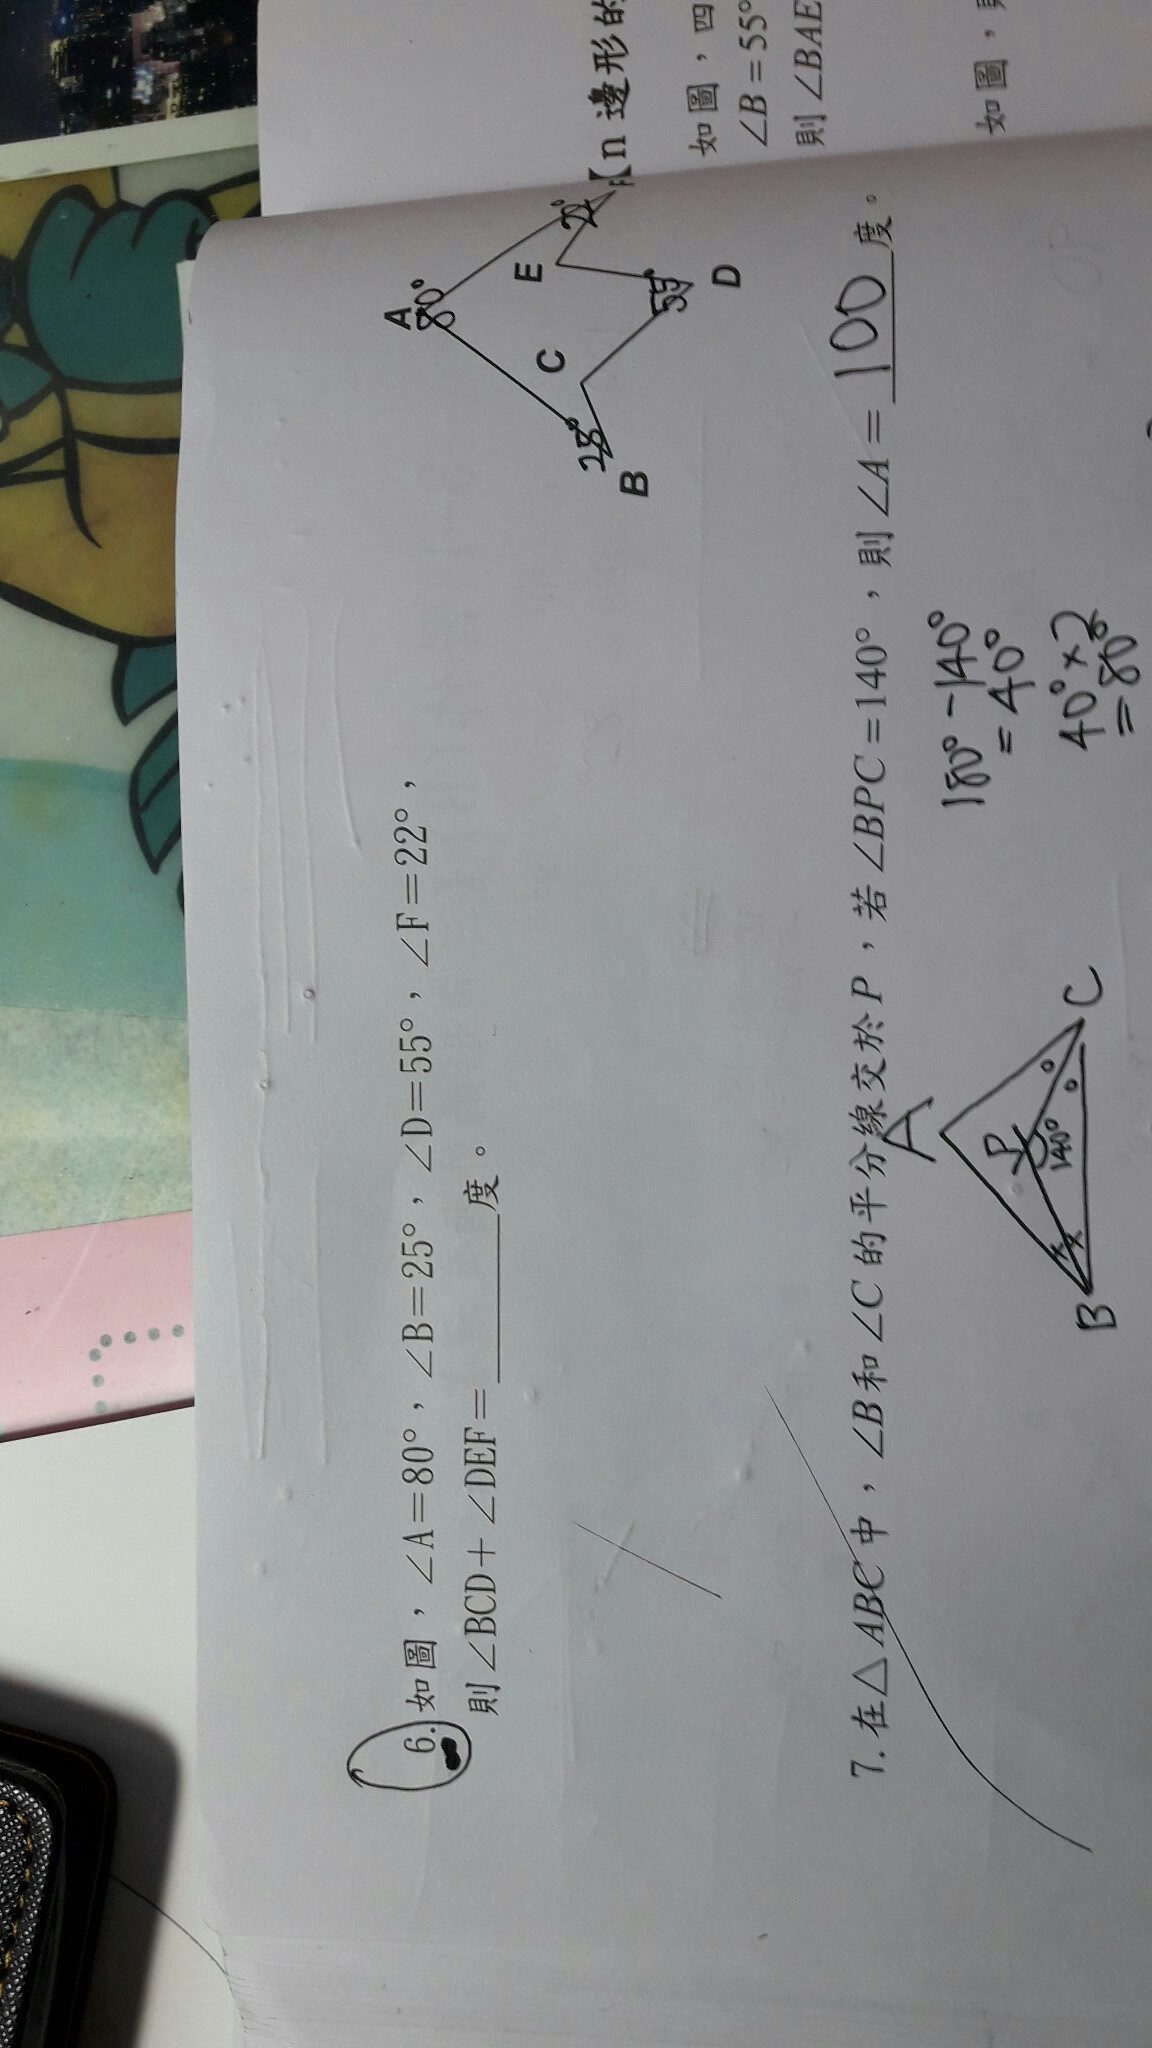 6. 如圖，∠A=80°，∠B=25°，∠D=55°，∠F=22°，
則∠BCD+∠DEF=______度。
A
80°
B
25°
C
D
55°
E
22°
F
7. 在△ABC中，∠B和∠C的平分線交於P，若∠BPC=140°，則∠A=100度。
A
P
140°
B
C
180°-140°
=40°
40°×2
=80°
【n邊形的
如圖，四
∠B=55°
則∠BAE
如圖，